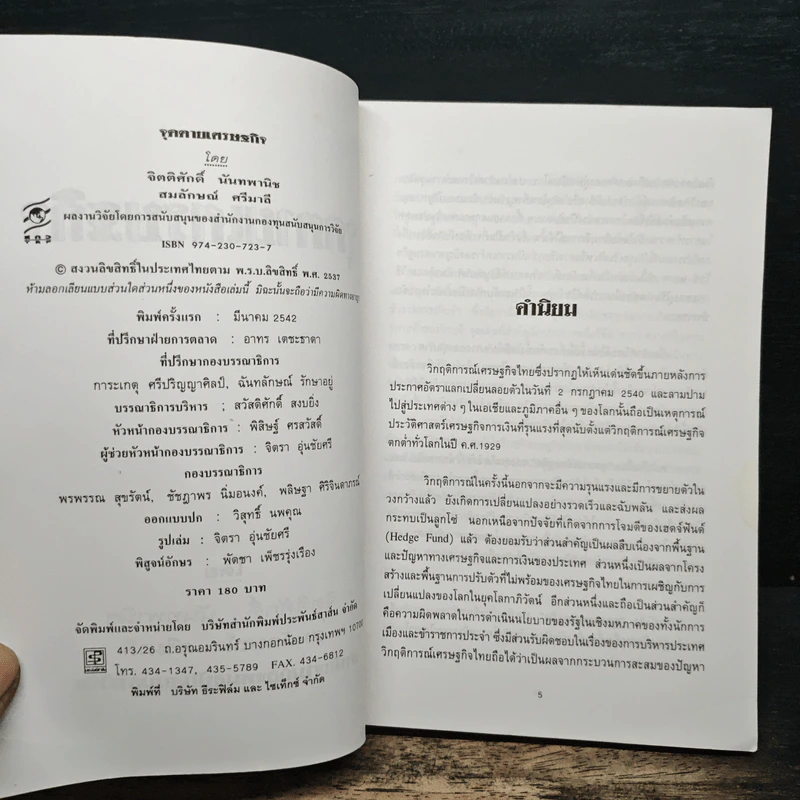 จุดตายเศรษฐกิจ
โดย
จิตติศักดิ์ นันทพานิช
สมลักษณ์ ศรีมาลี
ผลงานวิจัยโดยการสนับสนุนของสำนักงานกองทุนสนับสนุนการวิจัย
ISBN 974-230-723-7
© สงวนลิขสิทธิ์ในประเทศไทยตาม พ.ร.บ.ลิขสิทธิ์ พ.ศ. 2537
ห้ามลอกเลียนแบบส่วนใดส่วนหนึ่งของหนังสือเล่มนี้ มิฉะนั้นจะถือว่ามีความผิดทาง
พิมพ์ครั้งแรก : มีนาคม 2542
ที่ปรึกษาฝ่ายการตลาด : อาทร เตชะธาดา
ที่ปรึกษากองบรรณาธิการ
การะเกตุ ศรีปริญญาศิลป์, ฉันทลักษณ์ รักษาอยู่
บรรณาธิการบริหาร ; สวัสดิศักดิ์ สงบยิ่ง
หัวหน้ากองบรรณาธิการ : พิสิษฐ์ ศรสวัสดิ์
ผู้ช่วยหัวหน้ากองบรรณาธิการ : จิตรา อุ่นชัยศรี
กองบรรณาธิการ
พรพรรณ สุขรัตน์, ชัชฎาพร นิ่มอนงค์, พลิษฐา ศิริจินดาภรณ์
ออกแบบปก : วิสุทธิ์ นพคุณ
รูปเล่ม : จิตรา อุ่นชัยศรี
พิสูจน์อักษร : พัดชา เพ็ชรรุ่งเรือง
ราคา 180 บาท
จัดพิมพ์และจำหน่ายโดย บริษัทสำนักพิมพ์ประพันธ์สาส์น จำกัด
413/26 ถ.อรุณอมรินทร์ บางกอกน้อย กรุงเทพฯ 10700
โทร. 434-1347, 435-5789 FAX. 434-6812
พิมพ์ที่ บริษัท ธีระฟิล์ม และ ไซเท็กซ์ จำกัด
คำนิยม
วิกฤติการณ์เศรษฐกิจไทยซึ่งปรากฏให้เห็นเด่นชัดขึ้นภายหลังการ
ประกาศอัตราแลกเปลี่ยนลอยตัวในวันที่ 2 กรกฎาคม 2540 และลามปาม
ไปสู่ประเทศต่าง ๆ ในเอเชียและภูมิภาคอื่น ๆ ของโลกนั้นถือเป็นเหตุการณ์
ประวัติศาสตร์เศรษฐกิจการเงินที่รุนแรงที่สุดนับตั้งแต่วิกฤติการณ์เศรษฐกิจ
ตกต่ำทั่วโลกในปี ค.ศ.1929
วิกฤติการณ์ในครั้งนี้นอกจากจะมีความรุนแรงและมีการขยายตัวใน
วงกว้างแล้ว ยังเกิดการเปลี่ยนแปลงอย่างรวดเร็วและฉับพลัน และส่งผล
กระทบเป็นลูกโซ่ นอกเหนือจากปัจจัยที่เกิดจากการโจมตีของเฮดจ์ฟันด์
(Hedge Fund) แล้ว ต้องยอมรับว่าส่วนสำคัญเป็นผลสืบเนื่องจากพื้นฐาน
และปัญหาทางเศรษฐกิจและการเงินของประเทศ ส่วนหนึ่งเป็นผลจากโครง
สร้างและพื้นฐานการปรับตัวที่ไม่พร้อมของเศรษฐกิจไทยในการเผชิญกับการ
เปลี่ยนแปลงของโลกในยุคโลกาภิวัตน์ อีกส่วนหนึ่งและถือเป็นส่วนสำคัญก็
คือความผิดพลาดในการดำเนินนโยบายของรัฐในเชิงมหภาคของทั้งนักการ
เมืองและข้าราชการประจำ ซึ่งมีส่วนรับผิดชอบในเรื่องของการบริหารประเทศ
วิกฤติการณ์เศรษฐกิจไทยถือได้ว่าเป็นผลจากกระบวนการสะสมของปัญหา
5